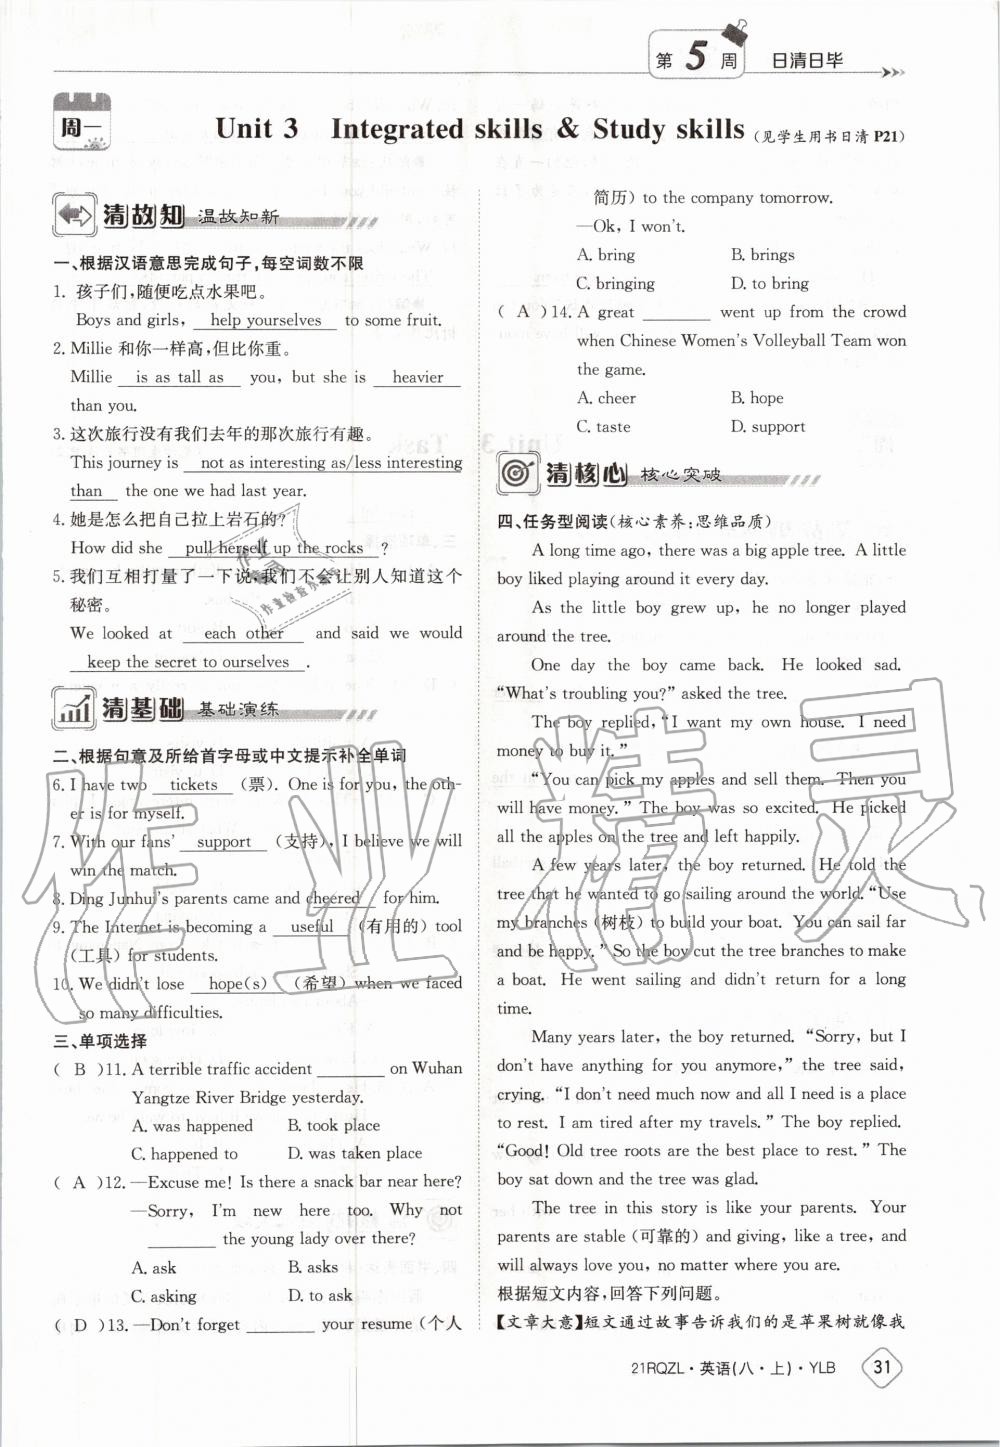 第5周 日清日毕
周一
Unit 3 Integrated skills & Study skills (见学生用书日清 P21)
清故知 温故知新
一、根据汉语意思完成句子,每空词数不限
1. 孩子们,随便吃点水果吧。
Boys and girls, help yourselves to some fruit.
2. Millie 和你一样高,但比你重。
Millie is as tall as you, but she is heavier
than you.
3. 这次旅行没有我们去年的那次旅行有趣。
This journey is not as interesting as/less interesting
than the one we had last year.
4. 她是怎么把自己拉上岩石的?
How did she pull herself up the rocks ?
5. 我们互相打量了一下说,我们不会让别人知道这个
秘密。
We looked at each other and said we would
keep the secret to ourselves .
清基础 基础演练
二、根据句意及所给首字母或中文提示补全单词
6. I have two tickets (票). One is for you, the oth-
er is for myself.
7. With our fans' support (支持), I believe we will
win the match.
8. Ding Junhui's parents came and cheered for him.
9. The Internet is becoming a useful (有用的) tool
(工具) for students.
10. We didn't lose hope(s) (希望) when we faced
so many difficulties.
三、单项选择
( B )11. A terrible traffic accident ________ on Wuhan
Yangtze River Bridge yesterday.
A. was happened B. took place
C. happened to D. was taken place
( A )12. —Excuse me! Is there a snack bar near here?
—Sorry, I'm new here too. Why not
________ the young lady over there?
A. ask B. asks
C. asking D. to ask
( D )13. —Don't forget ________ your resume (个人
简历) to the company tomorrow.
—Ok, I won't.
A. bring B. brings
C. bringing D. to bring
( A )14. A great ________ went up from the crowd
when Chinese Women's Volleyball Team won
the game.
A. cheer B. hope
C. taste D. support
清核心 核心突破
四、任务型阅读(核心素养:思维品质)
A long time ago, there was a big apple tree. A little
boy liked playing around it every day.
As the little boy grew up, he no longer played
around the tree.
One day the boy came back. He looked sad.
“What's troubling you?” asked the tree.
The boy replied, “I want my own house. I need
money to buy it.”
“You can pick my apples and sell them. Then you
will have money.” The boy was so excited. He picked
all the apples on the tree and left happily.
A few years later, the boy returned. He told the
tree that he wanted to go sailing around the world. “Use
my branches (树枝) to build your boat. You can sail far
and be happy.” So the boy cut the tree branches to make
a boat. He went sailing and didn't return for a long
time.
Many years later, the boy returned. “Sorry, but I
don't have anything for you anymore,” the tree said,
crying. “I don't need much now and all I need is a place
to rest. I am tired after my travels.” The boy replied.
“Good! Old tree roots are the best place to rest.” The
boy sat down and the tree was glad.
The tree in this story is like your parents. Your
parents are stable (可靠的) and giving, like a tree, and
will always love you, no matter where you are.
根据短文内容,回答下列问题。
【文章大意】短文通过故事告诉我们的是苹果树就像我
21RQZL·英语(八·上)·YLB 31
作业精灵